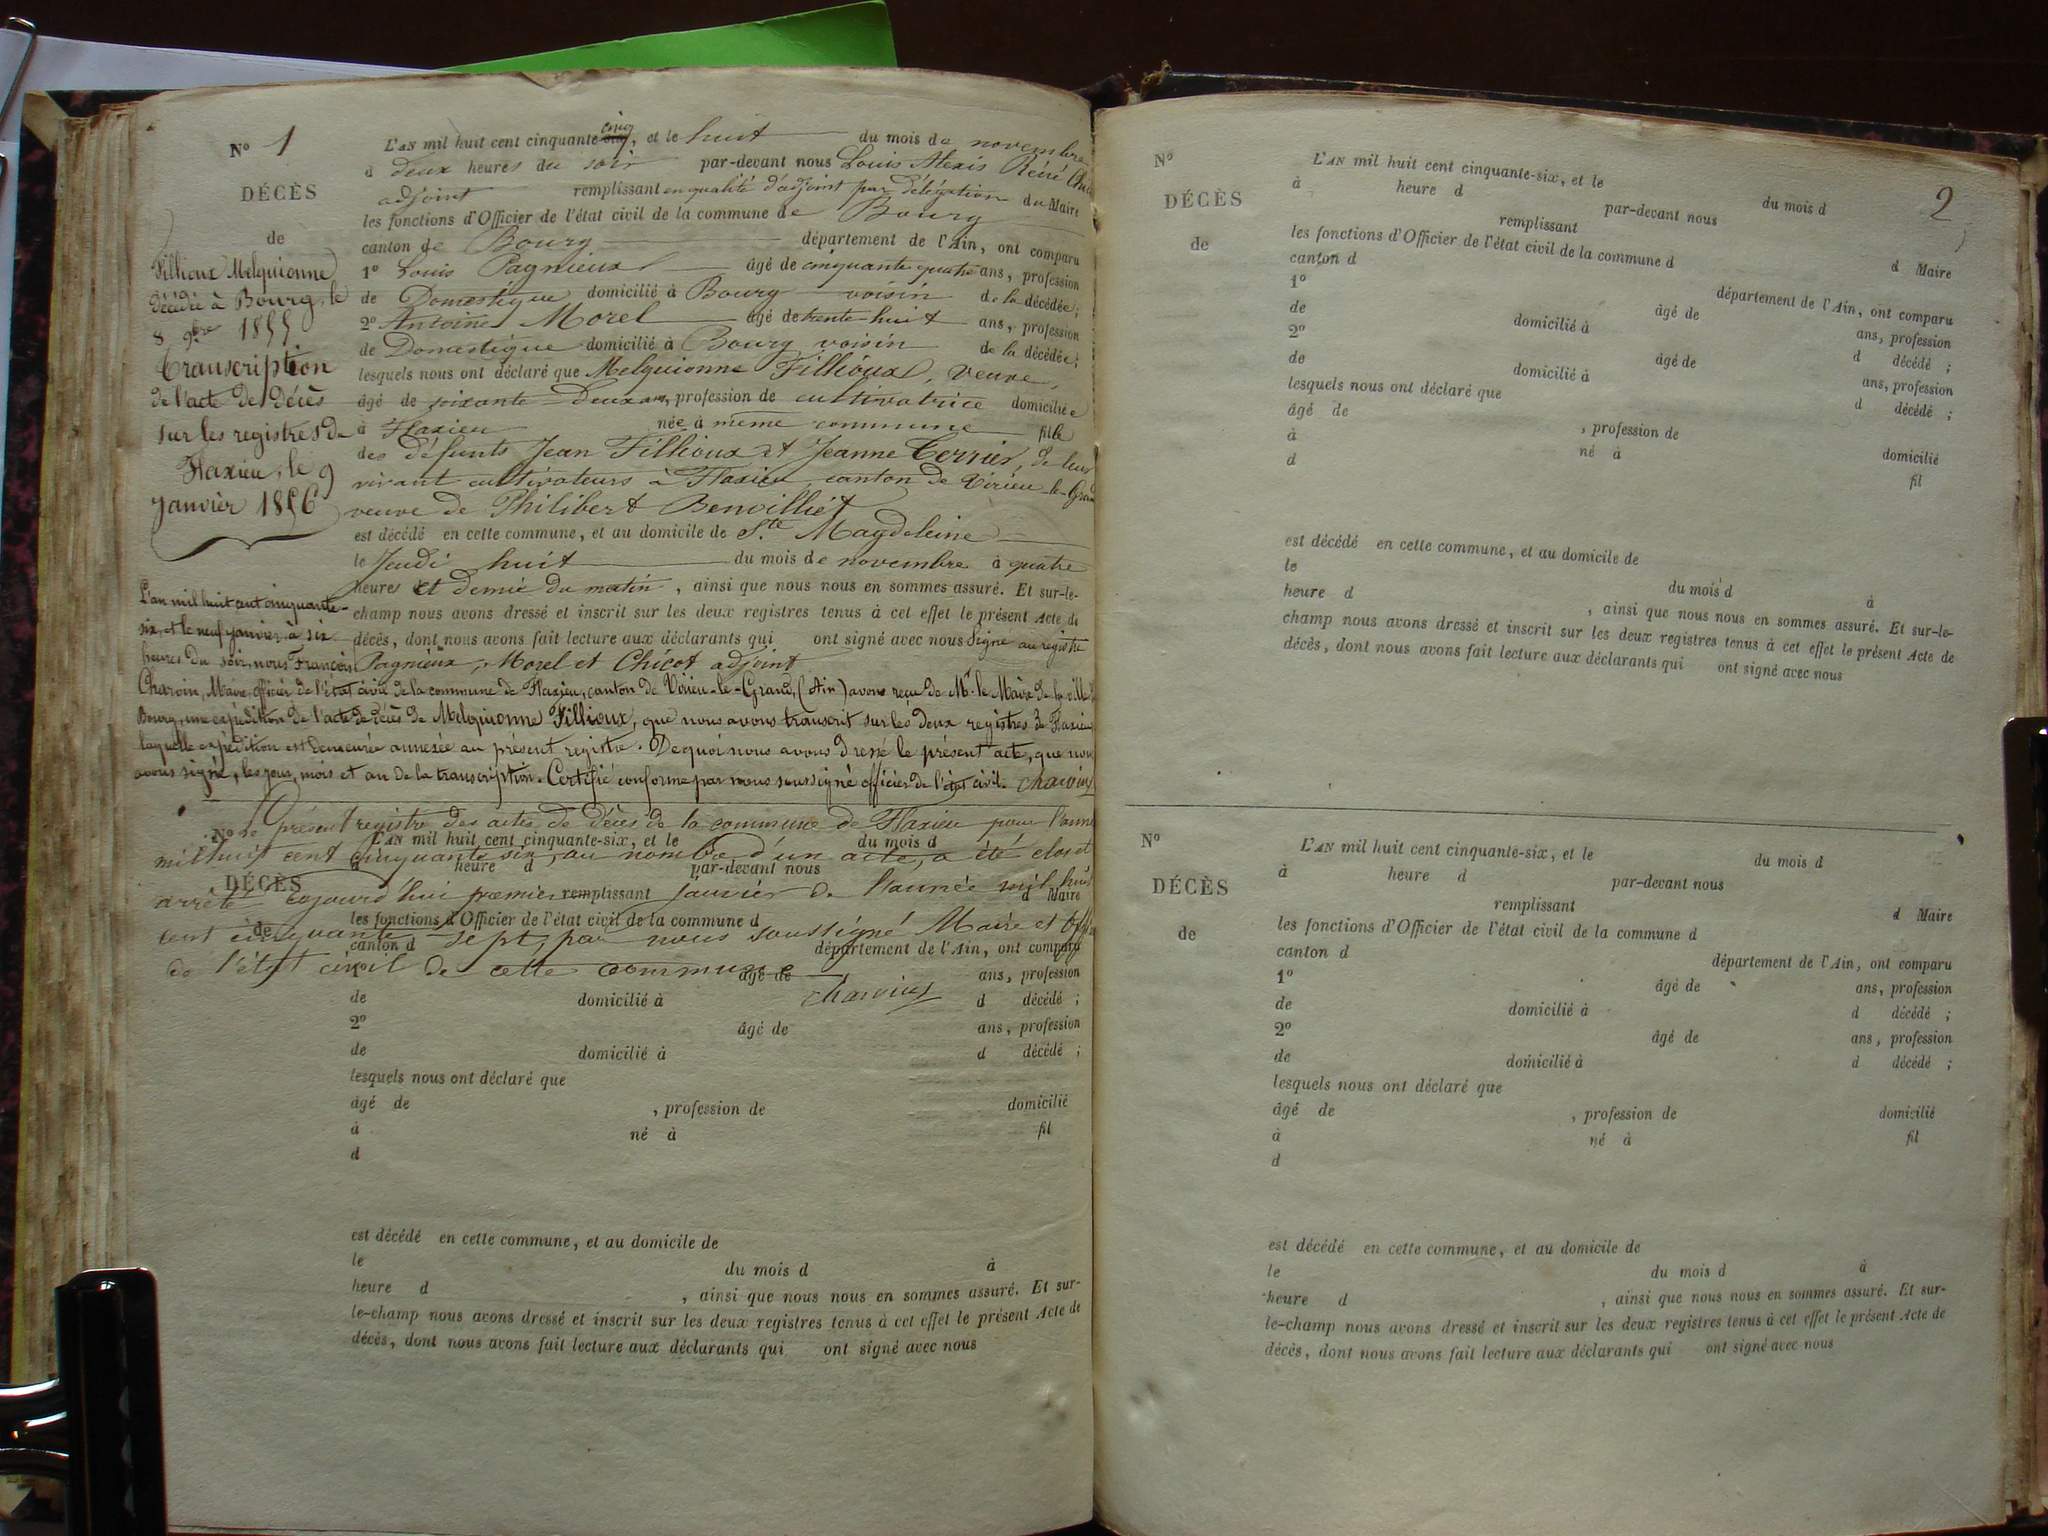 N° 1
DÉCÈS
de
Fillioux Melquionne
décédée à Bourg, le
8 9bre 1855
Transcription
de l'acte de décès
sur les registres de
Flaxieu, le 9
janvier 1856
L'AN mil huit cent cinquante-six cinq, et le huit du mois de novembre
à deux heures du soir par-devant nous Louis Alexis Réné
adjoint remplissant en qualité d'adjoint par délégation du Maire
les fonctions d'Officier de l'état civil de la commune de Bourg
canton de Bourg département de l'Ain, ont comparu
1° Louis Pagnieux âgé de cinquante quatre ans, profession
de Domestique domicilié à Bourg voisin de la décédée;
2° Antoine Morel âgé de trente-huit ans, profession
de Domestique domicilié à Bourg voisin de la décédée;
lesquels nous ont déclaré que Melquionne Fillioux, veuve,
âgé de soixante Deux ans, profession de cultivatrice domiciliée
à Flaxieu née à même commune fille
des défunts Jean Fillioux et Jeanne Terrier, de leur
vivant cultivateurs à Flaxieu canton de Virieu-le-Grand
veuve de Philibert Benvilliet
est décédé en cette commune, et au domicile de Ste Magdeleine
le Jeudi huit du mois de novembre à quatre
heures et demie du matin, ainsi que nous nous en sommes assuré. Et sur-le-
champ nous avons dressé et inscrit sur les deux registres tenus à cet effet le présent Acte de
décès, dont nous avons fait lecture aux déclarants qui ont signé avec nous Signé au registre
Pagnieux, Morel et Chicot adjoint
L'an mil huit cent cinquante-
six, et le neuf janvier, à six
heures du soir, nous François
Charvin, Maire, officier de l'état civil de la commune de Flaxieu, canton de Virieu-le-Grand, (Ain) avons reçu de Mr. le Maire de la ville de
Bourg, une expédition de l'acte de décès de Melquionne Fillioux, que nous avons transcrit sur les deux registres de Flaxieu
laquelle expédition est demeurée annexée au présent registre. De quoi nous avons dressé le présent acte, que nous
avons signé, les jour, mois et an de la transcription. Certifié conforme par nous soussigné officier de l'état civil. Charvin
Le présent registre des actes de décès de la commune de Flaxieu pour l'année
N° L'AN mil huit cent cinquante-six, et le du mois d
mil huit cent cinquante six, au nombre d'un acte, a été clos et
à heure d par-devant nous
DÉCÈS
arrêté aujourd'hui premier janvier de l'année mil huit
remplissant d Maire
les fonctions d'Officier de l'état civil de la commune d
de
cent cinquante sept, par nous soussigné Maire et officier
canton d département de l'Ain, ont comparu
de l'état civil de cette commune
âgé de ans, profession
Charvin
de domicilié à d décédé ;
2° âgé de ans, profession
de domicilié à d décédé ;
lesquels nous ont déclaré que
âgé de , profession de domicilié
à né à fil
d
est décédé en cette commune, et au domicile de
le du mois d à
heure d , ainsi que nous nous en sommes assuré. Et sur-
le-champ nous avons dressé et inscrit sur les deux registres tenus à cet effet le présent Acte de
décès, dont nous avons fait lecture aux déclarants qui ont signé avec nous
2
N°
DÉCÈS
de
L'AN mil huit cent cinquante-six, et le du mois d
à heure d par-devant nous
remplissant d Maire
les fonctions d'Officier de l'état civil de la commune d
canton d département de l'Ain, ont comparu
1° âgé de ans, profession
de domicilié à d décédé ;
2° âgé de ans, profession
de domicilié à d décédé ;
lesquels nous ont déclaré que
âgé de , profession de domicilié
à né à fil
d
est décédé en cette commune, et au domicile de
le du mois d à
heure d , ainsi que nous nous en sommes assuré. Et sur-le-
champ nous avons dressé et inscrit sur les deux registres tenus à cet effet le présent Acte de
décès, dont nous avons fait lecture aux déclarants qui ont signé avec nous
N°
DÉCÈS
de
L'AN mil huit cent cinquante-six, et le du mois d
à heure d par-devant nous
remplissant d Maire
les fonctions d'Officier de l'état civil de la commune d
canton d département de l'Ain, ont comparu
1° âgé de ans, profession
de domicilié à d décédé ;
2° âgé de ans, profession
de domicilié à d décédé ;
lesquels nous ont déclaré que
âgé de , profession de domicilié
à né à fil
d
est décédé en cette commune, et au domicile de
le du mois d à
heure d , ainsi que nous nous en sommes assuré. Et sur-
le-champ nous avons dressé et inscrit sur les deux registres tenus à cet effet le présent Acte de
décès, dont nous avons fait lecture aux déclarants qui ont signé avec nous